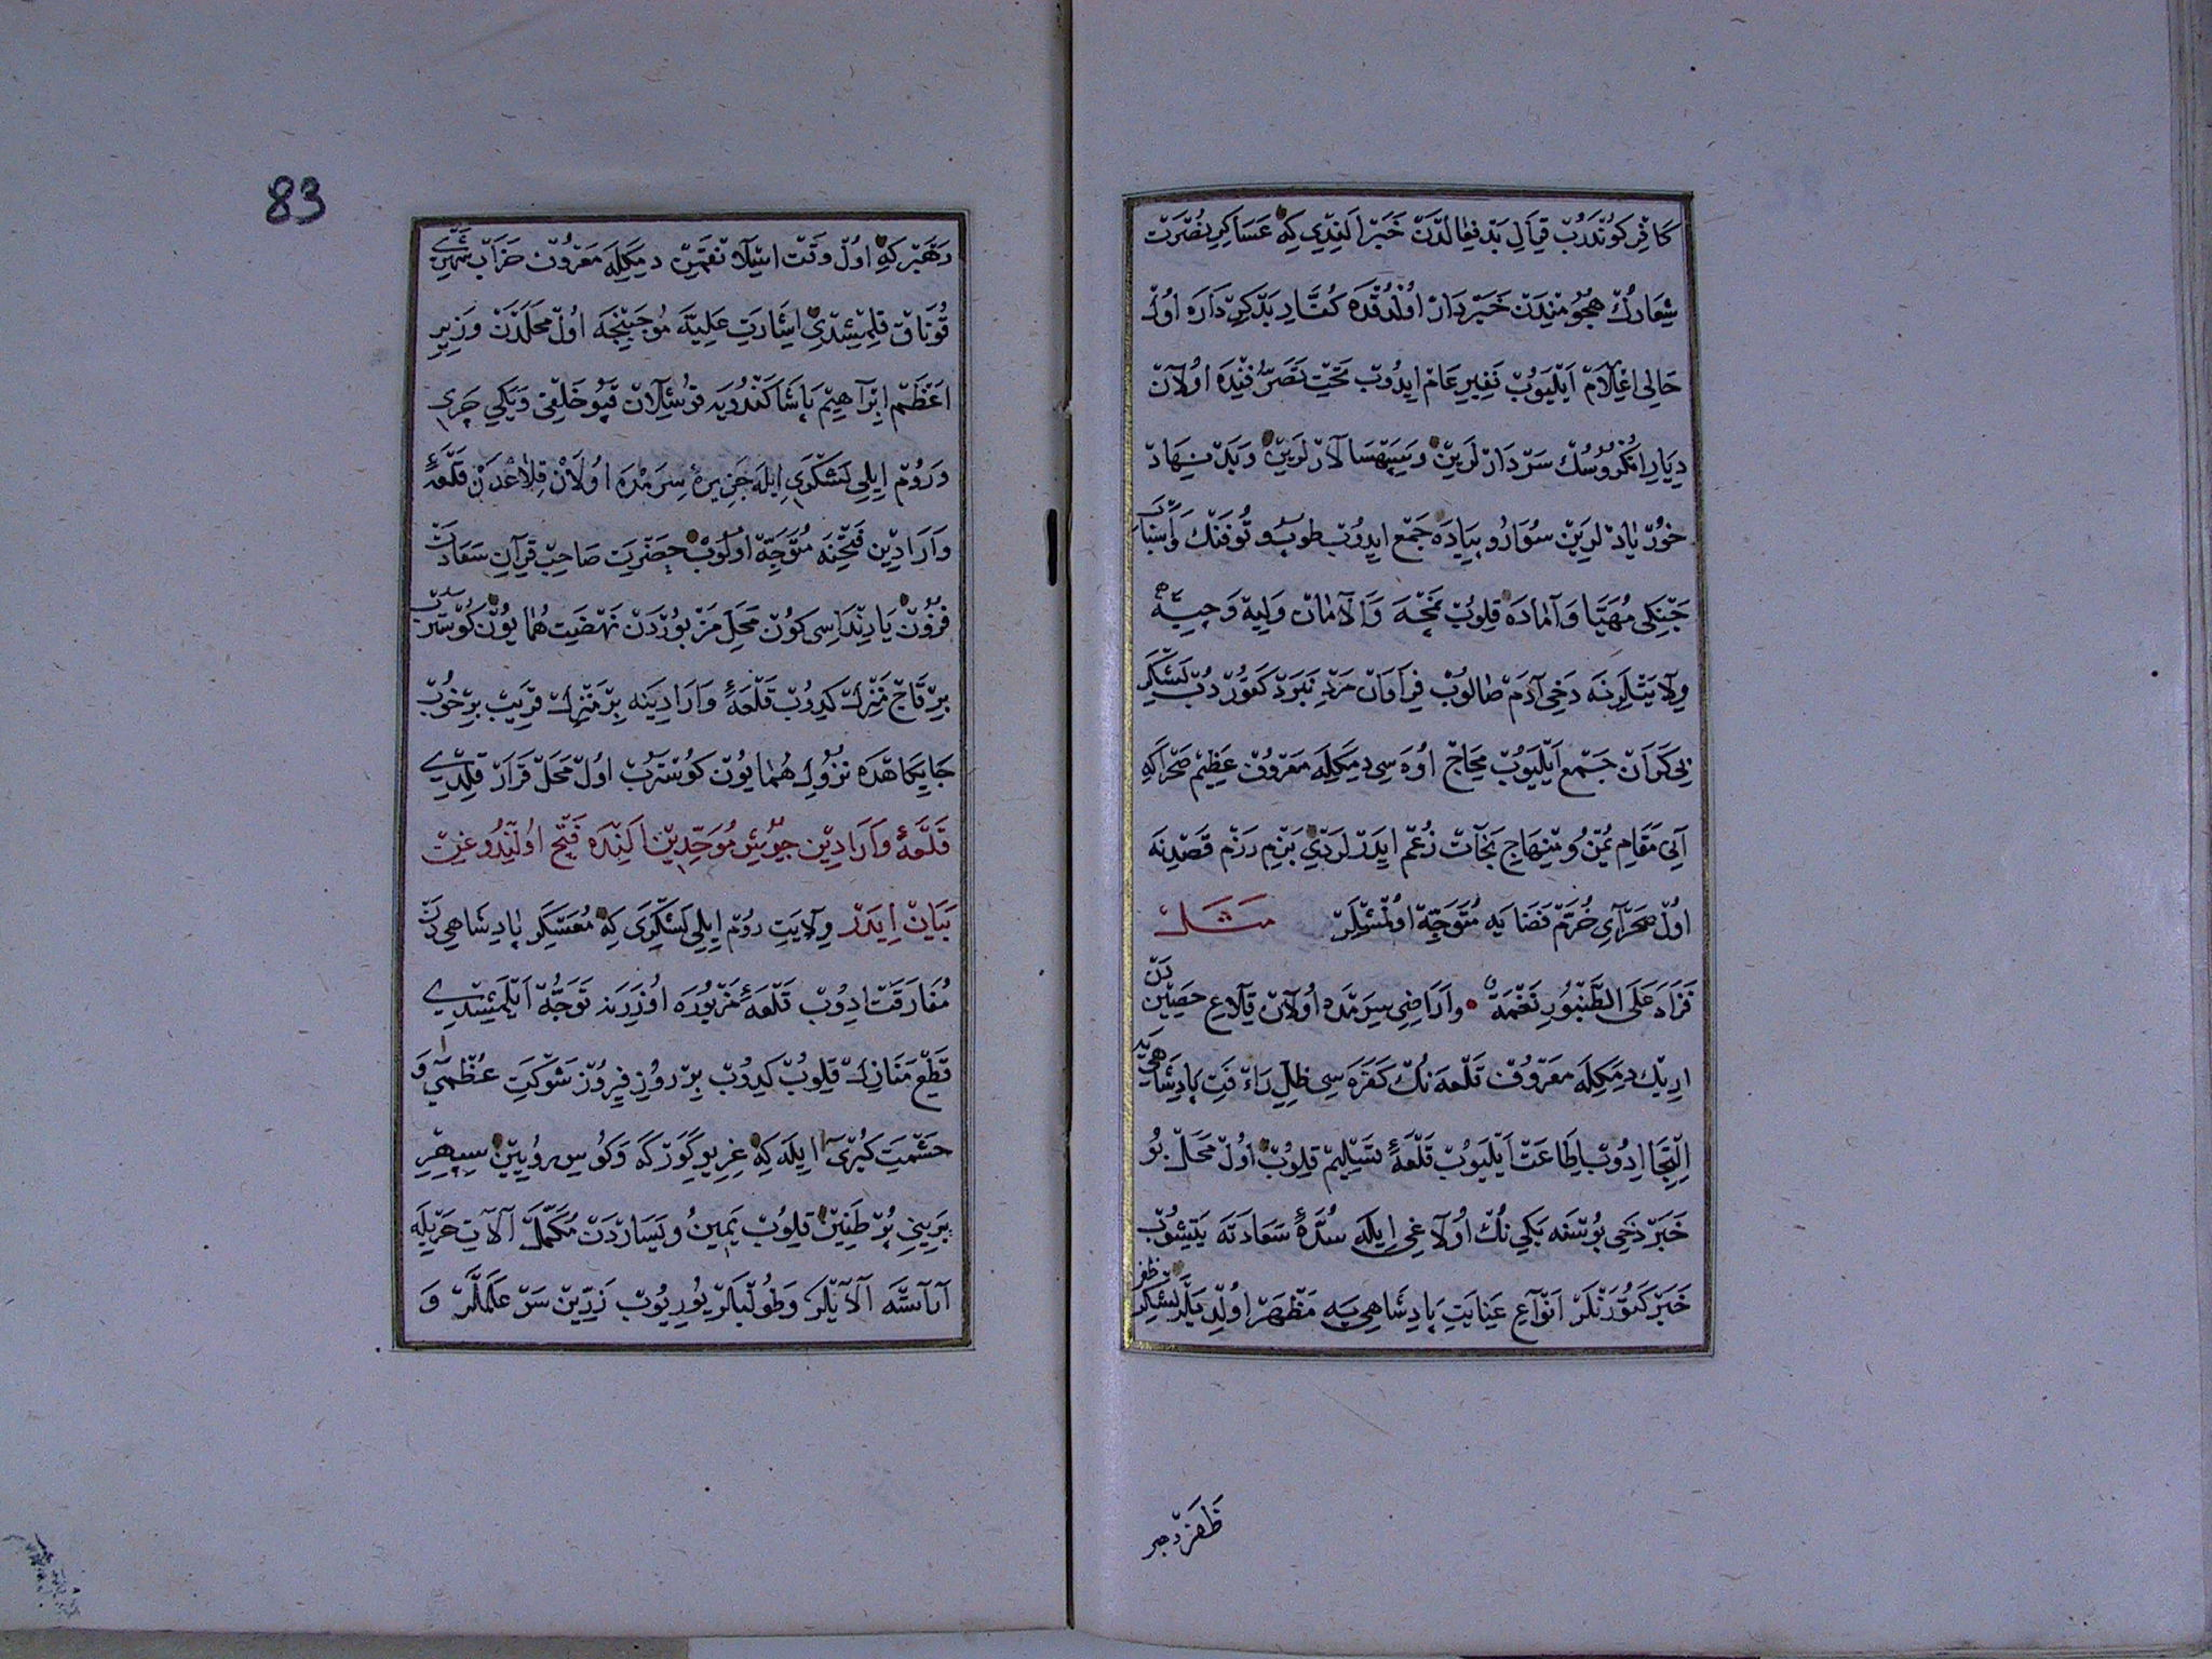 كافر كوندروب قرال بدفعالدن خبر الندی كه عساكر نصرت
شعارك هجومندن خبردار اولدقده كفار بدكرداره اول
حالی اعلام ایلیوب نفیر عام ایدوب تحت تصرفنده اولان
دیار انكروسك سردارلرین و سپهسالارلرین و بدنهاد
خور یادلرین سوار و پیاده جمع ایدوب طوب و توفنك و اسباب
جنكی مهیا و آماده قلوب نمچه و الامان و لیه و چیه
ولایتلرنه دخی آدم صالوب فراوان مرد نبرد كتوردوب لشكر
بی كران جمع ایلیوب محاج اوه سی دمكله معروف عظیم صحرا كه
آنی مقام یمن و منهاج نجات زعم ایدرلردی بزم رزم قصدنه
اول صحرای خرم فضایه متوجه اولمشلر مثل
فزاد علی الطنبور نغمة واراضی سیرمده اولان قلاع حصیندن
اریك دمكله معروف قلعه نك كفره سی ظل رأفت پادشاهیه
التجا ایدوب اطاعت ایلیوب قلعۀ تسلیم قلوب اول محلده بو
خبر دخی بوسنه بكی نك اولاغی ایله سدۀ سعادته یتیشوب
خبر كتورنلر انواع عنایت پادشاهی یه مظهر اولدیلر لشكر ظفر
ظفر رهبر
83
رهبر كه اول وقت استلا نقمین دمكله معروف خراب شهرین
قوناق قلمشدی اشارت علیه موجبنجه اول محلدن وزیر
اعظم ابراهیم پاشا كندویه قوشیلان قپو خلقی و یكی چری
و روم ایلی لشكری ایله جزیرۀ سرمده اولان قلاعدن قلعۀ
وارادین فتحنه متوجه اولوب حضرت صاحب قران سعادت
قرون یادنداسی كون محل مزبوردن نهضت همایون كوستروب
بر قاج منزل كیدوب قلعۀ وارادینه بر منزل قریب بر خوب
جایكاهده نزول همایون كوستروب اول محل قرار قلدی
قلعۀ وارادین جیوش موحدین النده فتح اولندوغن
بیان ایدر ولایت روم ایلی لشكری كه معسكر پادشاهیدن
مفارقت ادوب قلعۀ مزبوره اوزرنه توجه ایلمشدی
قطع منازل قلوب كیدوب بر روز فیروز شوكت عظمی و
حشمت كبری ایله كه غریو كوركه و كوس رویین سپهر
برینی پر طنین قلوب یمین و یساردن مكمل آلات حربله
آراسته آلایلر و طولبلر یوریوب زرین سر علملر و